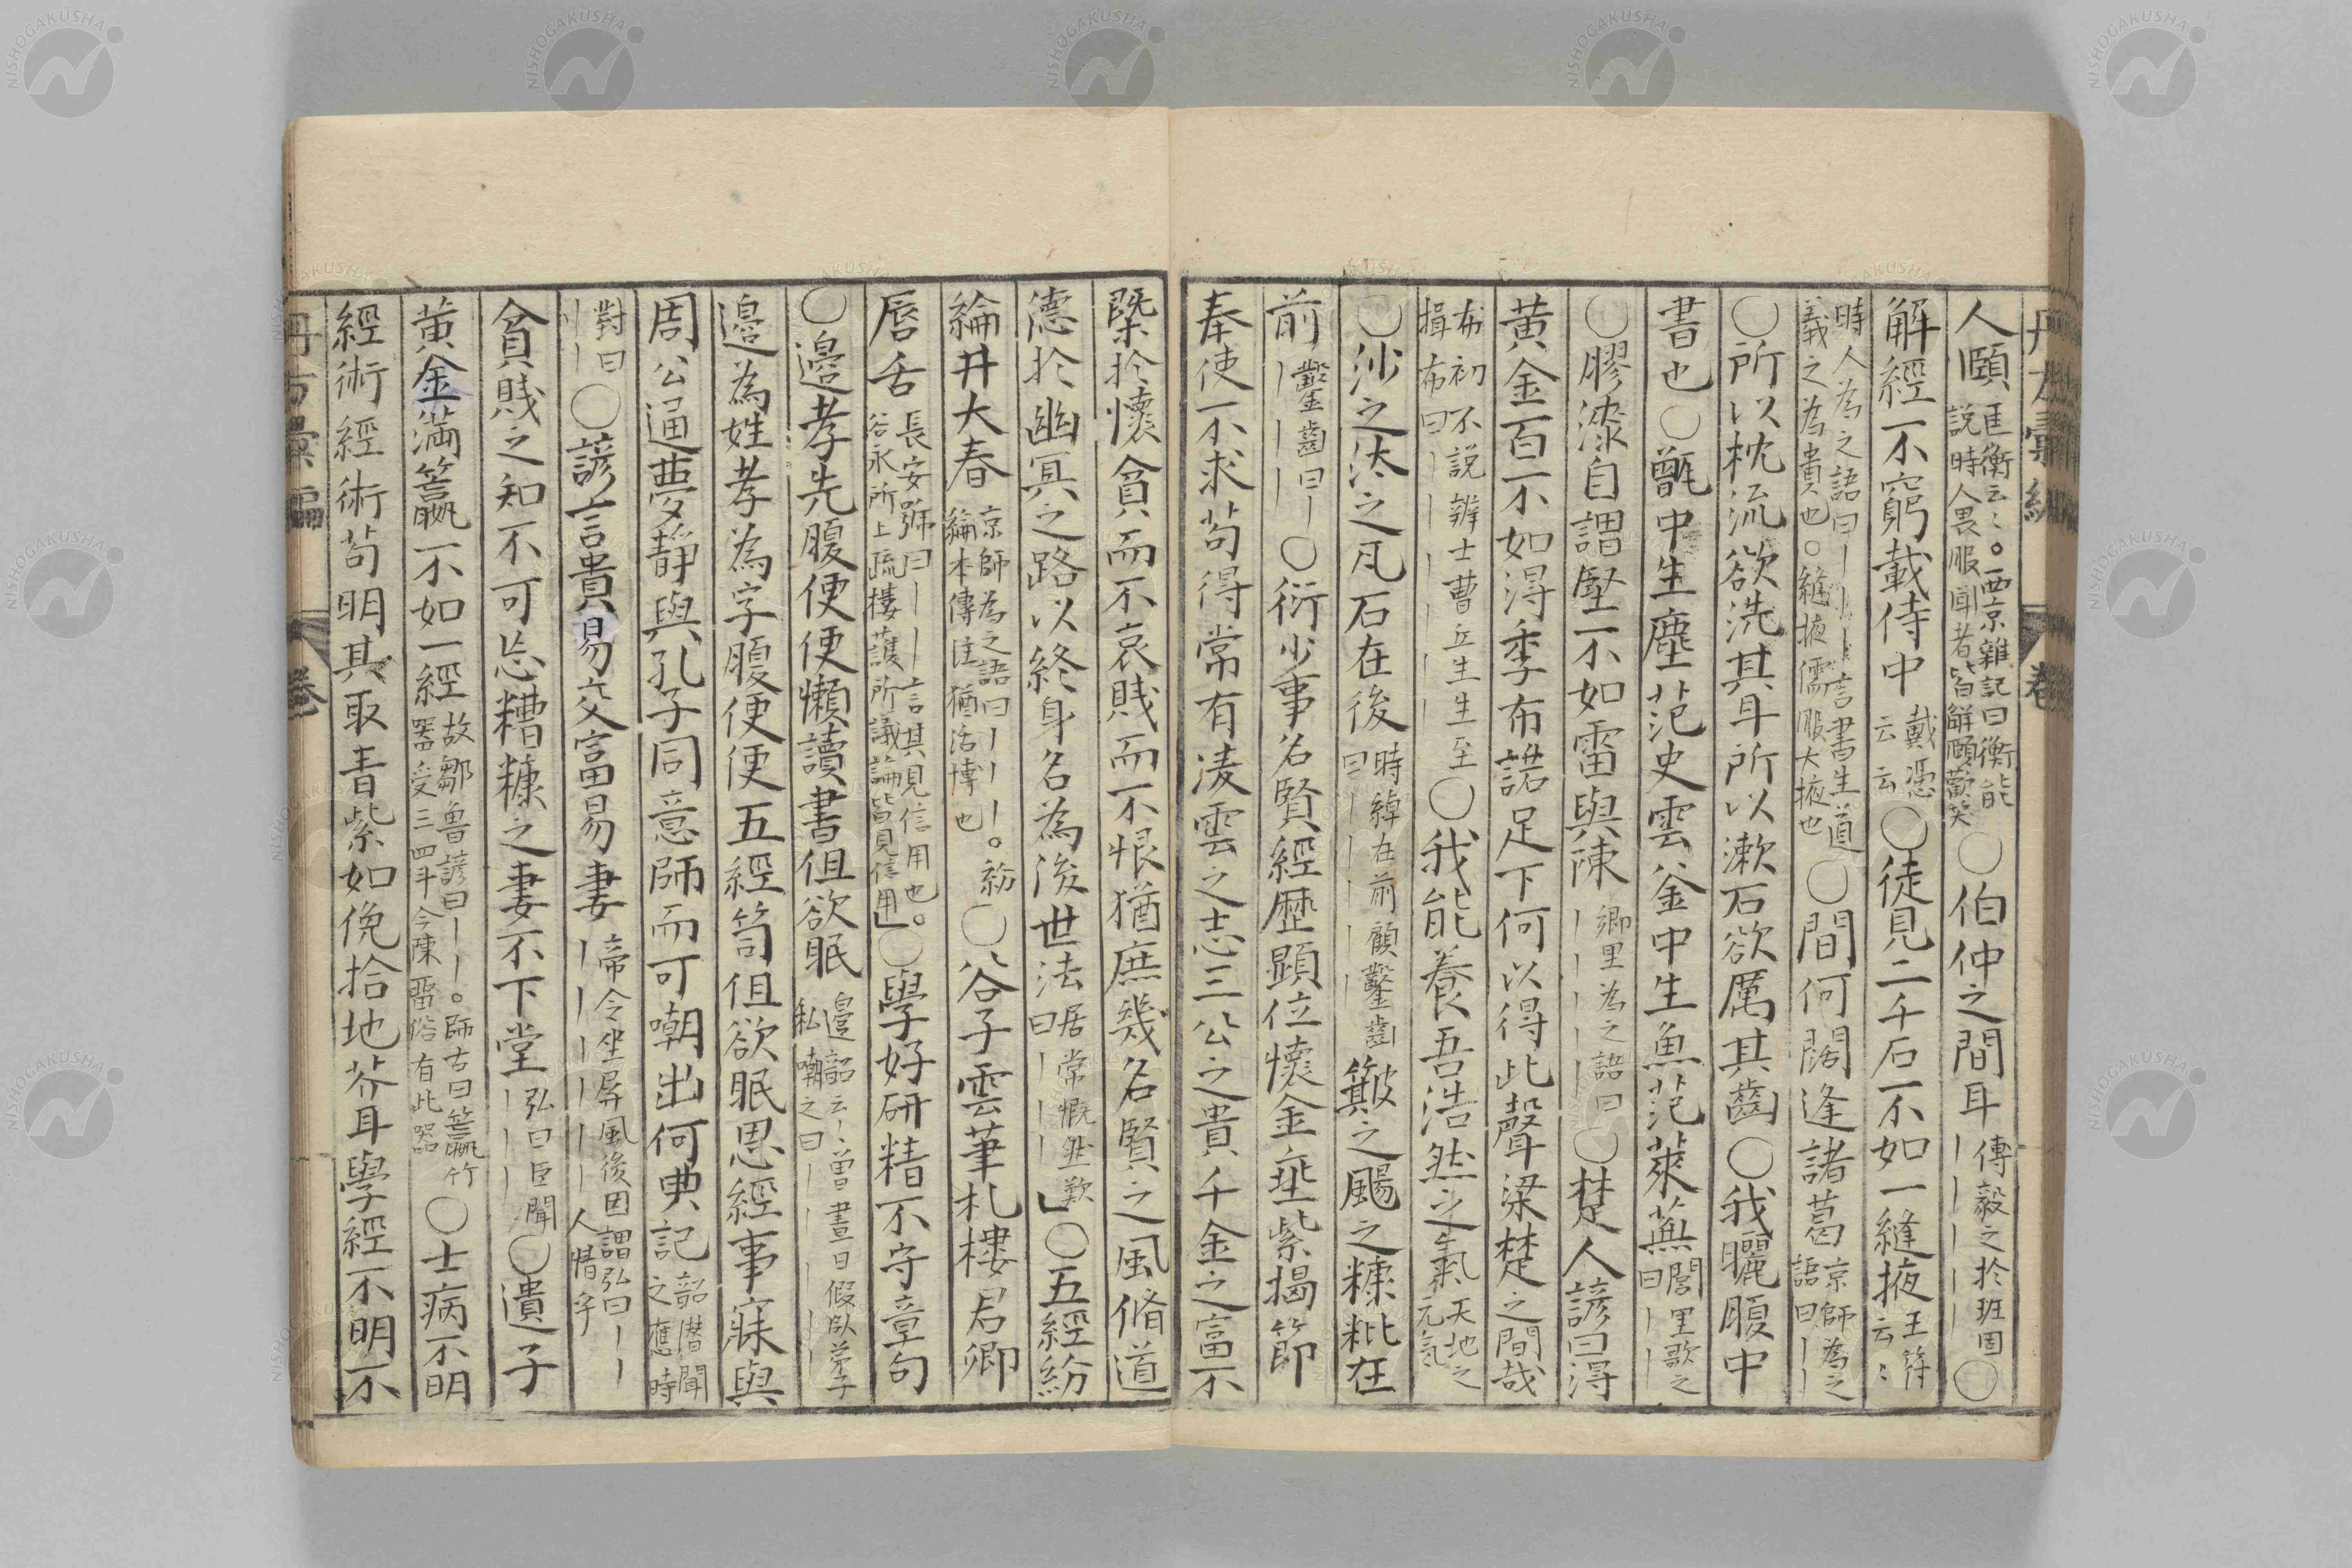 人頤匡衡云〻。西京雜記曰衡能說時人畏服聞者皆解頤歡笑○伯仲之間耳傅毅之於班固｜｜｜｜｜○
解經不窮載侍中戴憑云云○徒見二千石不如一縫掖王符云〻
時人為之語曰｜｜｜｜言書生道義之為貴也。縫掖儒服大掖也○間何闊逢諸葛京師為之語曰｜｜
○所以枕流欲洗其耳所以漱石欲厲其齒○我曬腹中
書也○甑中生塵范史雲釜中生魚范萊蕪閭里歌之曰｜｜
○膠漆自謂堅不如雷與陳鄉里為之語曰｜｜｜｜｜○楚人諺曰得
黄金百不如得季布諾足下何以得此聲梁楚之間哉
布初不說辨士曹丘生生至揖布曰｜｜｜｜｜○我能養吾浩然之氣天地之元氣
○沙之汰之凡石在後時綽在前顧鑿齒曰｜｜｜｜簸之颺之糠粃在
前鑿齒曰｜｜｜｜○衍少事名賢經歷顯位懷金垂紫揭節
奉使不求苟得常有凌雲之志三公之貴千金之富不
槩於懷貧而不哀賤而不恨猶庶幾名賢之風脩道
德於幽冥之路以終身名為後世法居常慨然歎曰｜｜｜○五經紛
綸井大春京師為之語曰｜｜｜。紛綸本傳注猶浩博也○谷子雲筆札樓君卿
唇舌長安號曰｜｜言其見信用也。谷永所上疏樓護所議論皆見信用○學好研精不守章句
○邉孝先腹便便懶讀書但欲眠邉韶云〻曽晝日假臥弟子私嘲之曰｜｜｜｜
邉為姓孝為字腹便便五經笥但欲眠思經事寐與
周公通夢靜與孔子同意師而可嘲出何典記韶潜聞之應時
對曰｜｜○諺言貴易交富易妻帝令坐屏風後因謂弘曰｜｜｜｜｜｜｜｜人情乎
貧賤之知不可忘糟糠之妻不下堂弘曰臣聞｜｜｜○遺子
黄金滿籯不如一經故鄒魯諺曰｜｜。師古曰籯竹器受三四斗今陳畱俗有此器○士病不明
經術經術苟明其取青紫如俛拾地芥耳學經不明不